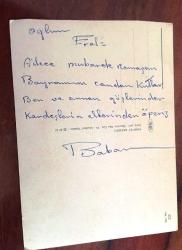 oğlum
Erol:
Ailece mubarek Ramazan
Bayramını candan kutlar
Ben ve annen gözlerinden
Kardeşlerin ellerinden öperiz
Baban